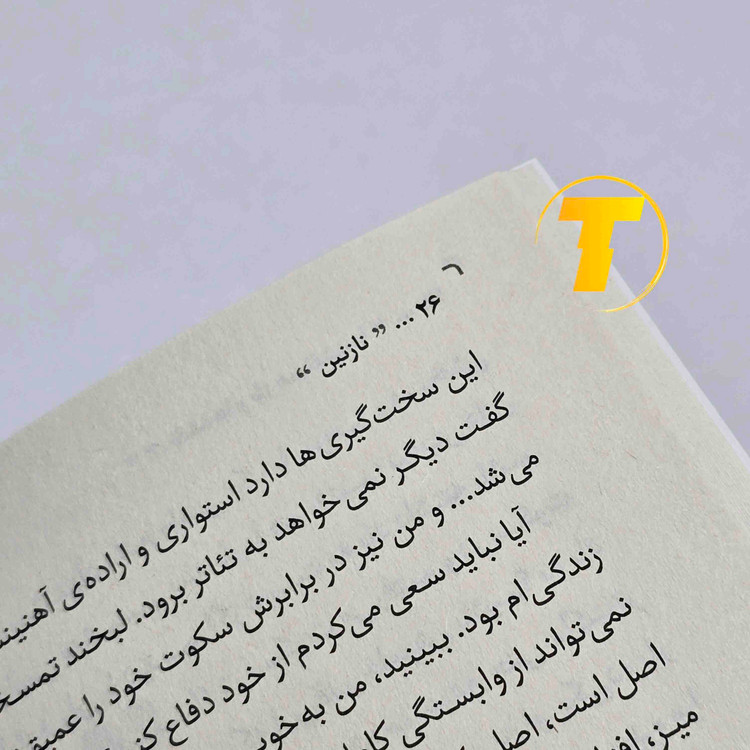 T
۲۶ ... ” نازنین “
این سخت‌گیری‌ها دارد استواری و اراده‌ی
گفت دیگر نمی‌خواهد به تئاتر برود. لبخند
می‌شد... و من نیز در برابرش سکوت خود را
آیا نباید سعی می‌کردم از خود دفاع
زندگی‌ام بود. ببینید، من به
نمی‌تواند از وابستگی
اصل است، اصل
میز،